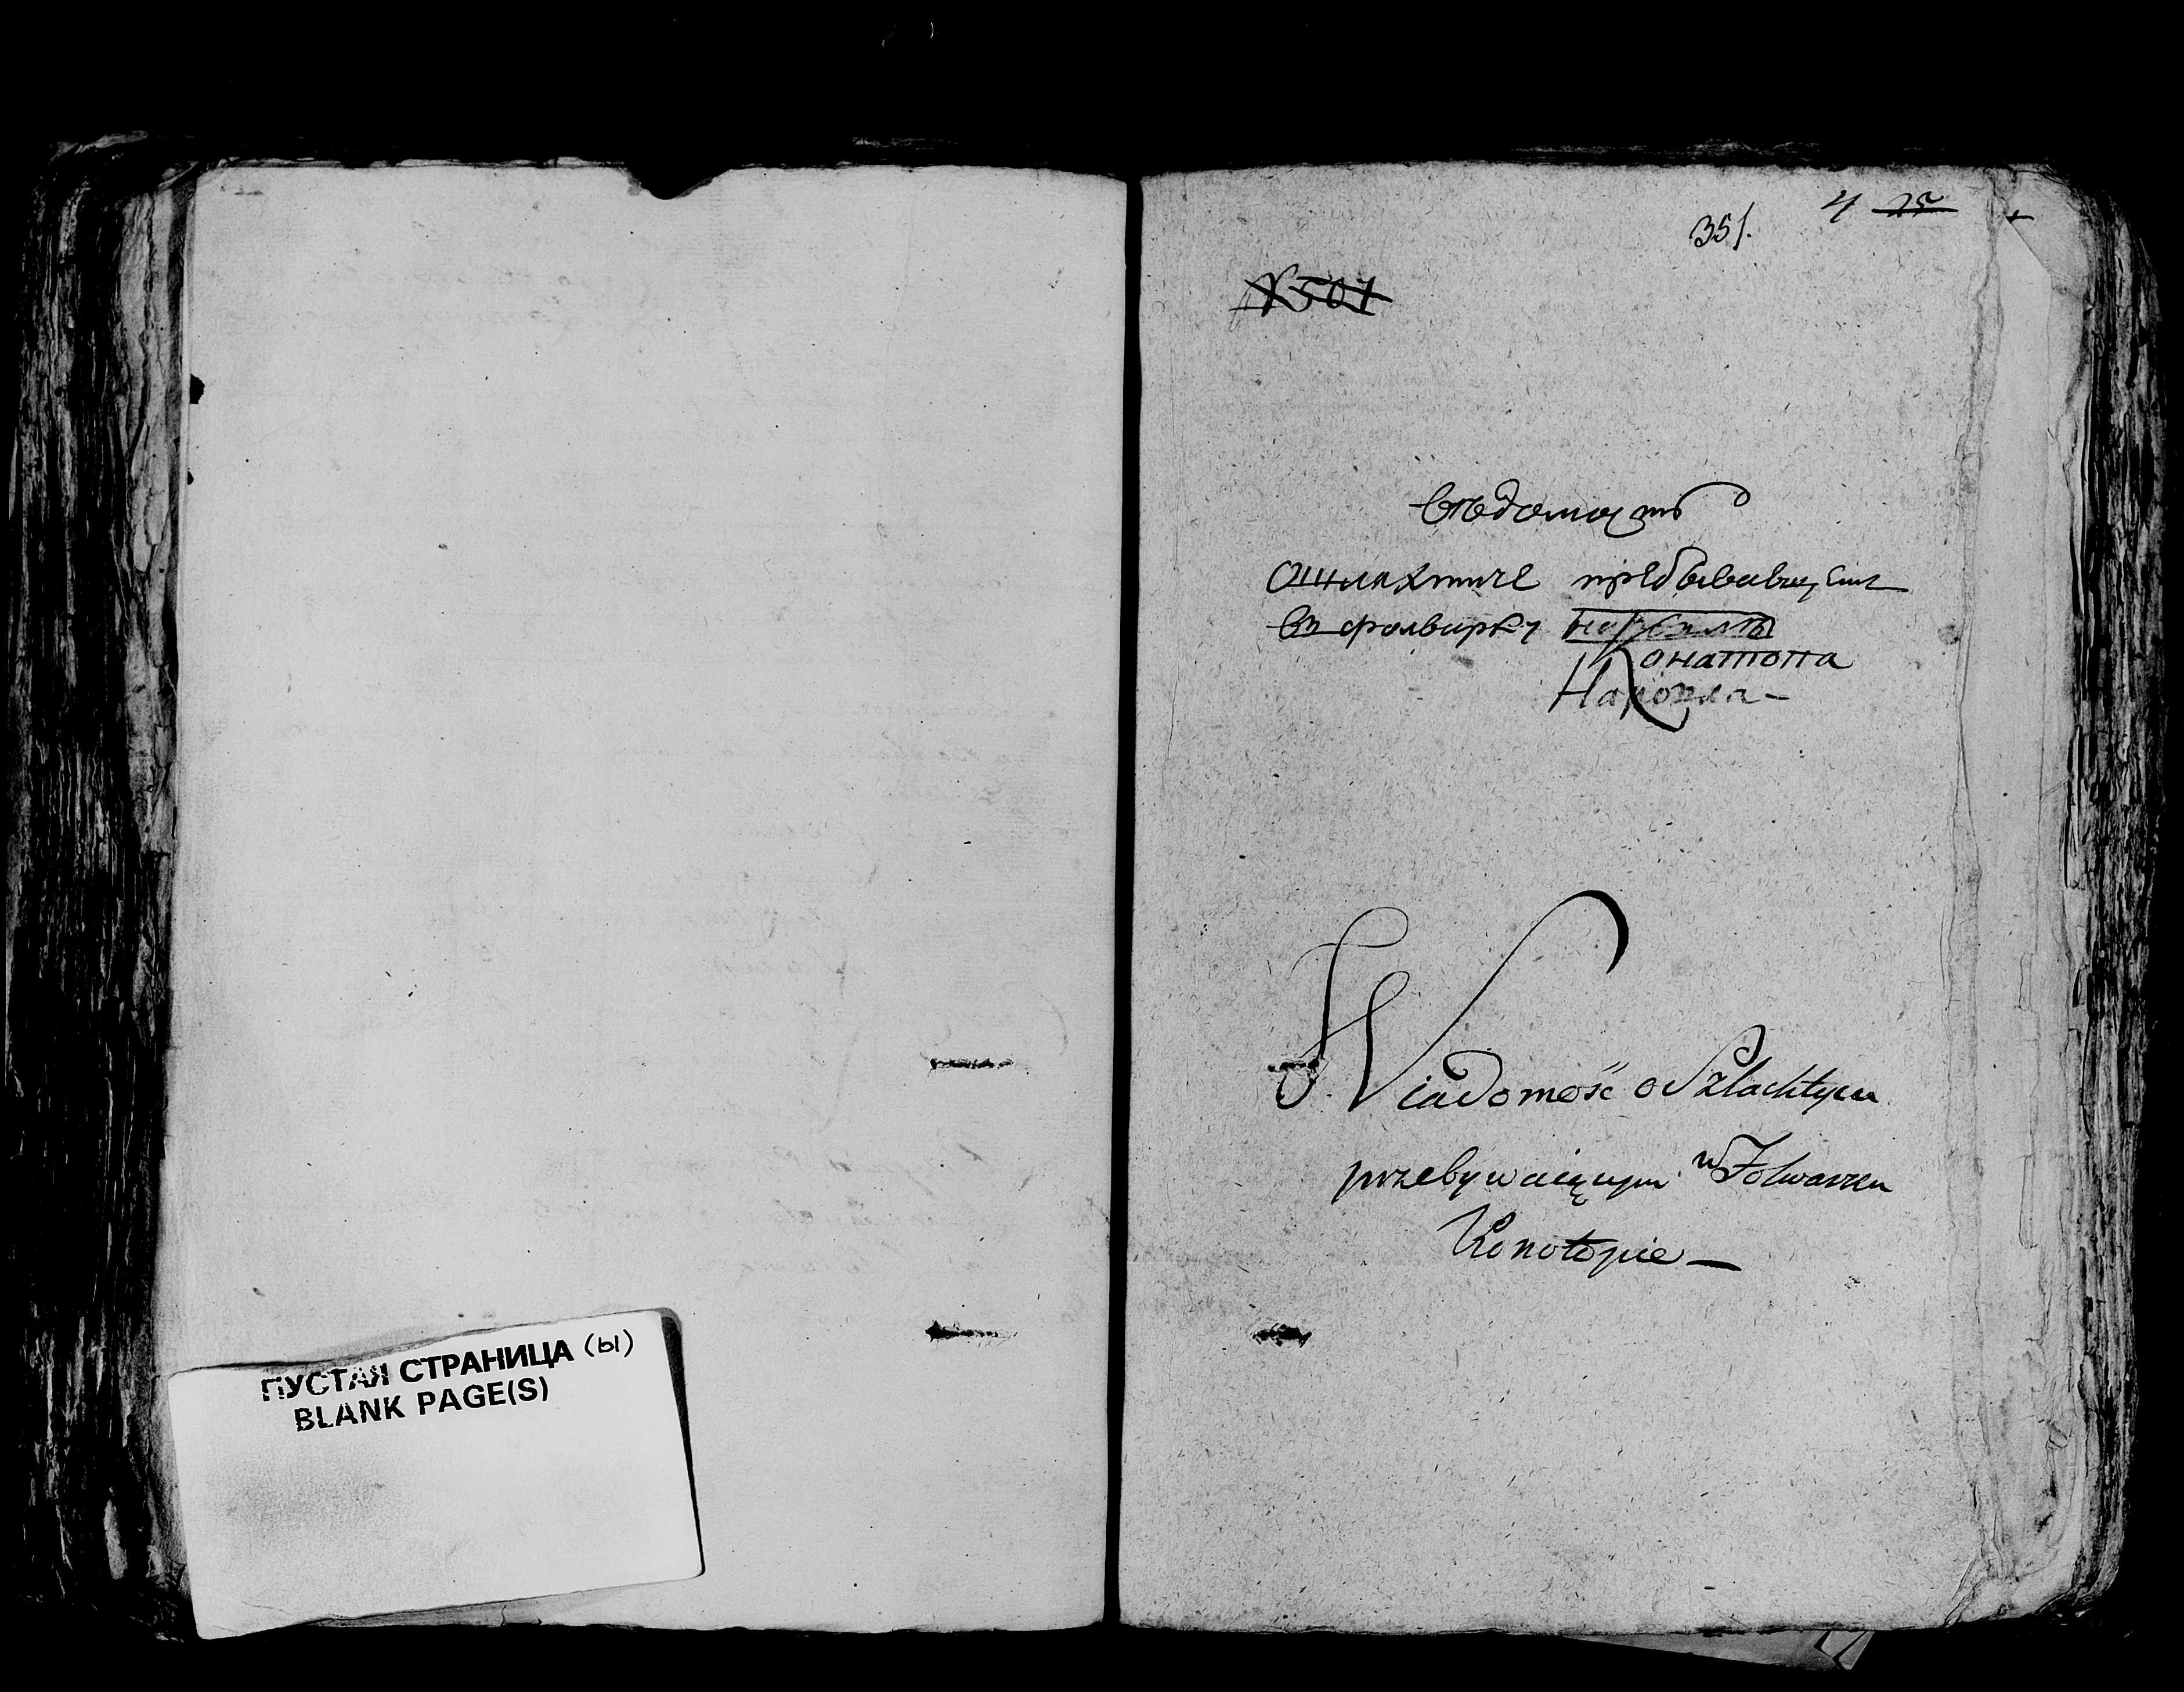 ПУСТАЯ СТРАНИЦА (ы)
BLANK PAGE(S)
4 25
351.
№501
Ведомость
ошляхтиче пребывающем
въ фолварку
Конатопа
Wiadomość o Szlachtycu
przebywaiącym w Folwarku
Konotopie —